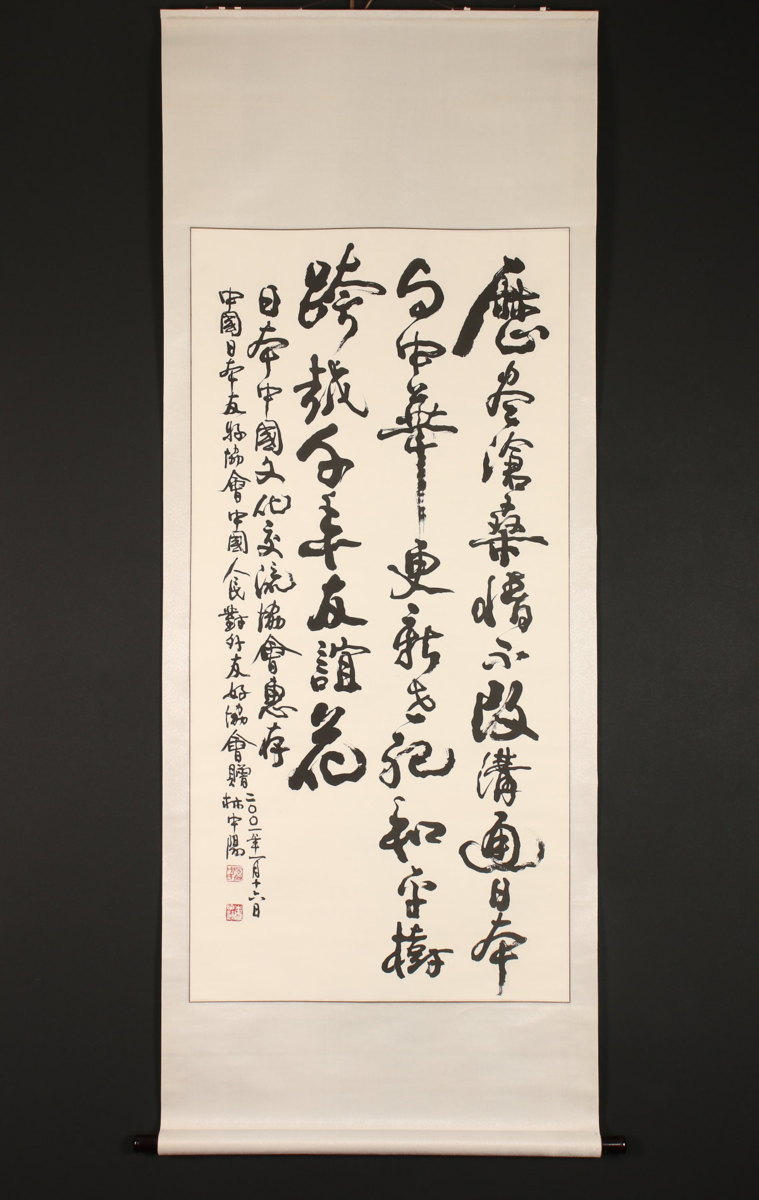 歷尽滄桑情不改溝通日本
与中華更新世紀和平樹
跨越千年友誼花
日本中國文化交流協會惠存
中國日本友好協會中國人民對外友好協會贈
二〇〇一年一月十六日
林中陽